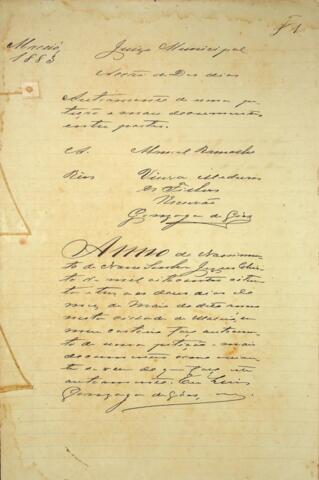 Maceió
1883
f 1
Juizo Municipal
Acção de Dez dias
Autuamento de uma pe-
tição e mais documentos
entre partes.
A. Manoel Ramalho
Réos Vieira Madeiros
& Filhos
Escrivão
Gonzaga de Góes
Anno do Nascimen-
to de Nosso Senhor Jezus Chris-
to de mil oitocentos oiten-
ta e tres, aos dous dias do
mez de Maio do dito anno
nesta cidade de Maceió, em
meu cartorio faço autuamen-
to de uma petição e mais
documentos como
te se vê do que faço este
autuamento. Eu Luis
Gonzaga de Góes,